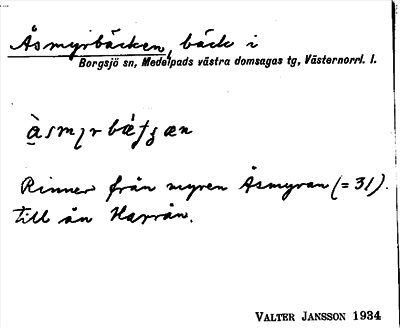 Åsmyrbäcken, bäck i
Borgsjö sn, Medelpads västra domsagas tg, Västernorrl. l.
Rinner från myren Åsmyran (= 31).
till ån Harrån.
VALTER JANSSON 1934